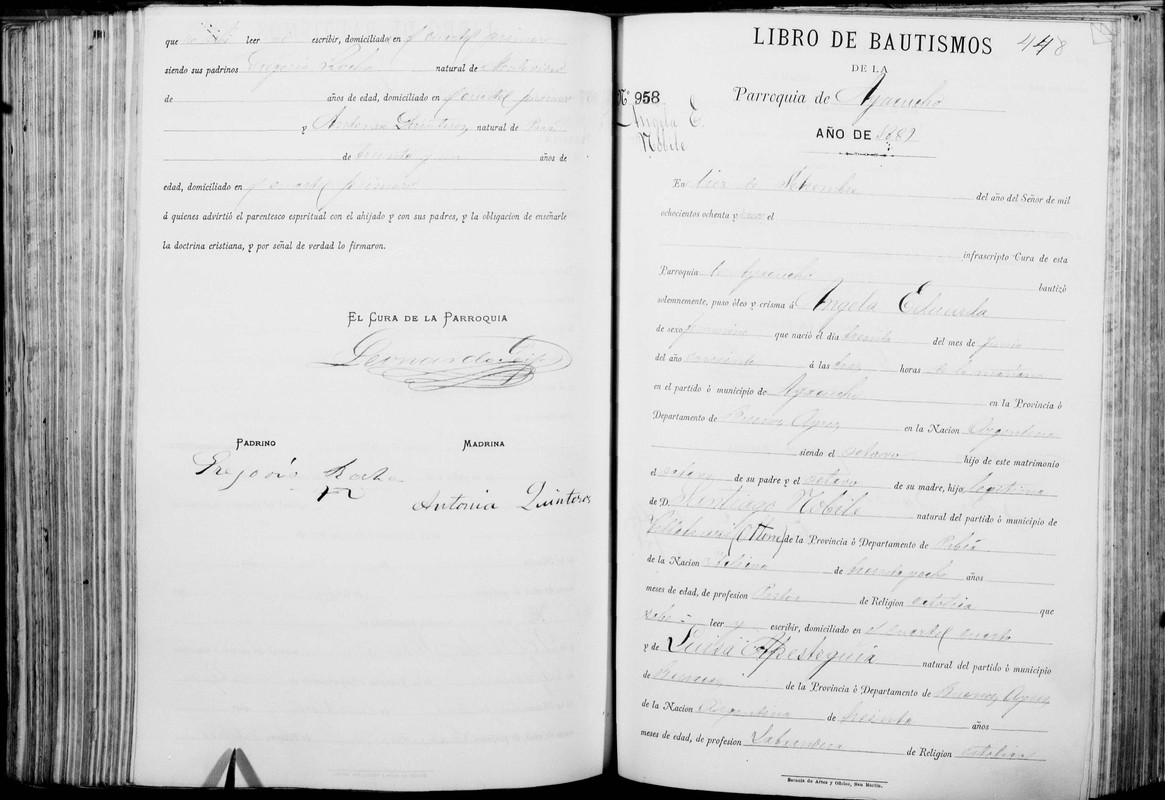 que leer escribir, domiciliado en el cuartel primero
siendo sus padrinos Gregorio Rocha natural de Montevideo
de años de edad, domiciliado en el cuartel primero
y Antonia Quinteros natural de
de treinta y un años de
edad, domiciliado en el cuartel primero
á quienes advirtió el parentesco espiritual con el ahijado y con sus padres, y la obligacion de enseñarle
la doctrina cristiana, y por señal de verdad lo firmaron.
EL CURA DE LA PARROQUIA
PADRINO MADRINA
Antonia Quinteros
LIBRO DE BAUTISMOS 448
DE LA
Nº 958
Parroquia de Ayacucho
Angela E.
Nobile
AÑO DE
En diez de Setiembre del año del Señor de mil
ochocientos ochenta y el
infrascripto Cura de esta
Parroquia de Ayacucho bautizó
solemnemente, puso óleo y crisma á Angela Eduarda
de sexo femenino que nació el dia treinta del mes de Junio
del año corriente á las tres horas de la mañana
en el partido ó municipio de Ayacucho en la Provincia ó
Departamento de Buenos Ayres en la Nacion Argentina
siendo el octavo hijo de este matrimonio
el octavo de su padre y el octavo de su madre, hija legitima
de D. Santiago Nobile natural del partido ó municipio de
de la Provincia ó Departamento de
de la Nacion Italiana de años
meses de edad, de profesion de Religion catolica que
sabe leer y escribir, domiciliado en el cuartel cuarto
y de Luisa Apesteguia natural del partido ó municipio
de de la Provincia ó Departamento de Buenos Ayres
de la Nacion Argentina de treinta años
meses de edad, de profesion Labradora de Religion catolica
Escuela de Artes y Oficios, San Martin.